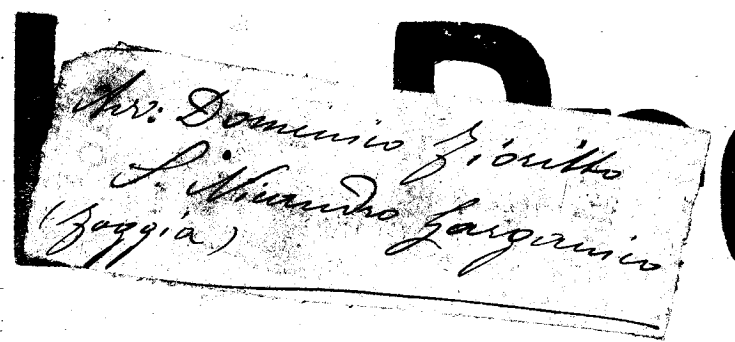 Avv: Domenico Fioritto
S. Nicandro Garganico
(Foggia)